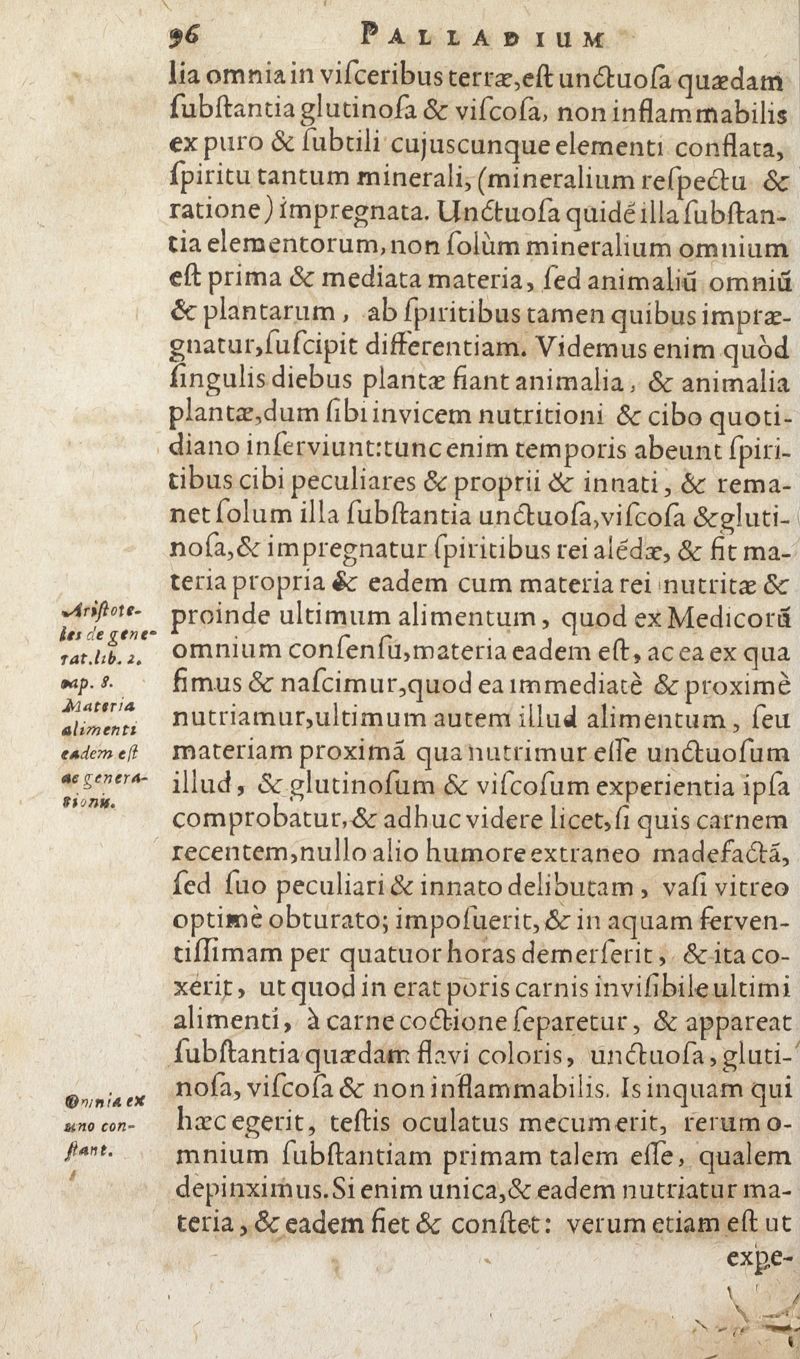 96 PALLADIUM
lia omnia in viſceribus terræ, eſt unctuoſa quædam
ſubſtantia glutinoſa & viſcoſa, non inflammabilis
ex puro & ſubtili cujuscunque elementi conflata,
ſpiritu tantum minerali, (mineralium reſpectu &
ratione) impregnata. Unctuoſa quidē illa ſubſtan-
tia elementorum, non ſolùm mineralium omnium
eſt prima & mediata materia, ſed animaliū omniū
& plantarum, ab ſpiritibus tamen quibus impræ-
gnatur, ſuſcipit differentiam. Videmus enim quòd
ſingulis diebus plantæ fiant animalia, & animalia
plantæ, dum ſibi invicem nutritioni & cibo quoti-
diano inſerviunt: tunc enim temporis abeunt ſpiri-
tibus cibi peculiares & proprii & innati, & rema-
net ſolum illa ſubſtantia unctuoſa, viſcoſa & gluti-
noſa, & impregnatur ſpiritibus rei alēdæ, & fit ma-
teria propria & eadem cum materia rei nutritæ &
proinde ultimum alimentum, quod ex Medicorū
omnium conſenſu, materia eadem eſt, ac ea ex qua
fimus & naſcimur, quod ea immediatè & proximè
nutriamur, ultimum autem illud alimentum, ſeu
materiam proximā qua nutrimur eſſe unctuoſum
illud, & glutinoſum & viſcoſum experientia ipſa
comprobatur, & adhuc videre licet, ſi quis carnem
recentem, nullo alio humore extraneo madefactā,
ſed ſuo peculiari & innato delibutam, vaſi vitreo
optimè obturato; impoſuerit, & in aquam ferven-
tiſſimam per quatuor horas demerſerit, & ita co-
xerit, ut quod in erat poris carnis inviſibile ultimi
alimenti, à carne coctione ſeparetur, & appareat
ſubſtantia quædam flavi coloris, unctuoſa, gluti-
noſa, viſcoſa & non inflammabilis. Is inquam qui
hæc egerit, teſtis oculatus mecum erit, rerum o-
mnium ſubſtantiam primam talem eſſe, qualem
depinximus. Si enim unica, & eadem nutriatur ma-
teria, & eadem fiet & conſtet: verum etiam eſt ut
expe-
Ariſtote-
les de gene-
rat. lib. 2.
cap. 8.
Materia
alimenti
eadem eſt
ac genera-
tionis.
Omnia ex
uno con-
ſtant.